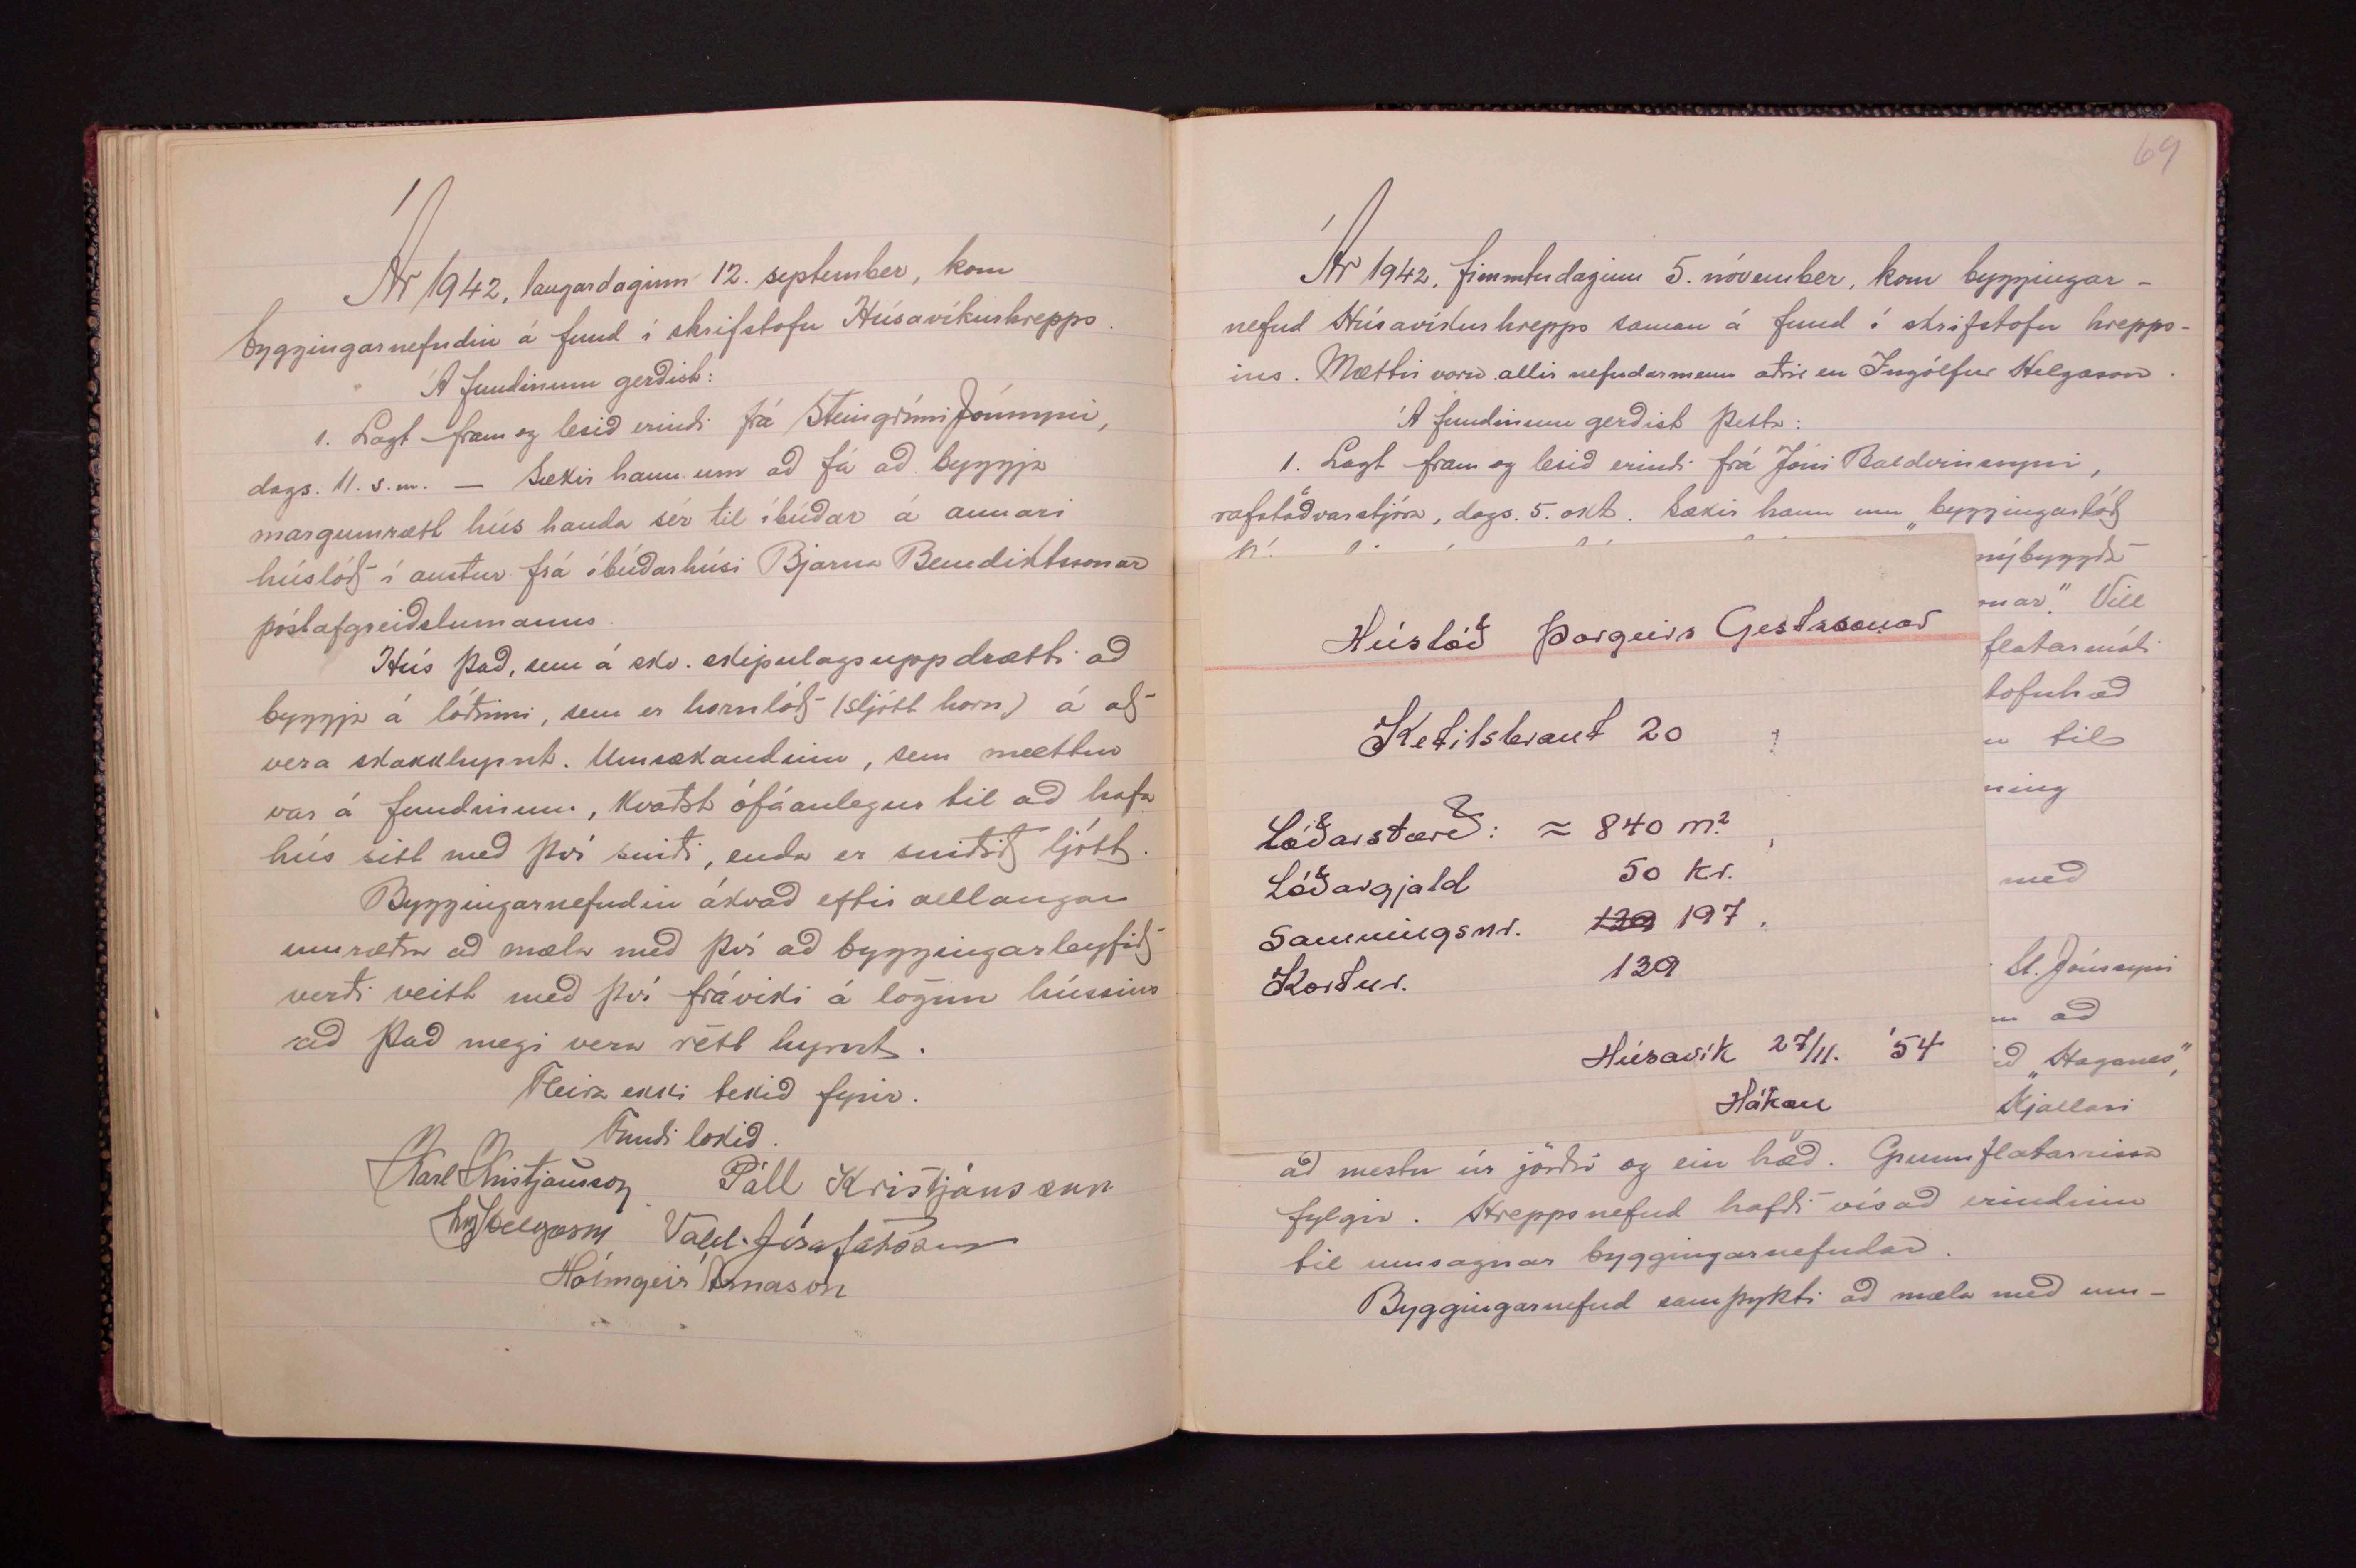 Ár 1942, laugardaginn 12. september, kom
byggingarnefndin á fund í skrifstofu Húsavíkurhrepps.
Á fundinum gerðist:
1. Lagt fram og lesið erindi frá Steingrími Jónssyni,
dags. 11. s.m. — Sækir hann um að fá að byggja
margumrætt hús handa sér til íbúðar á annari
húslóð í austur frá íbúðarhúsi Bjarna Benediktssonar
póstafgreiðslumanns.
Hús það, sem á skv. skipulagsuppdrætti að
byggja á lóðinni, sem er hornlóð (sljótt horn) á að
vera skakkhyrnt. Umsækandinn, sem mættur
var á fundinum, kvaðst ófáanlegur til að hafa
hús sitt með því sniði, enda er sniðið ljótt.
Byggingarnefndin ákvað eftir alllangar
umræður að mæla með því að byggingarleyfið
verði veitt með því fráviki á lögun hússins
að það megi vera rétt hyrnt.
Fleira ekki tekið fyrir.
Fundi lokið.
Karl Kristjánsson Páll Kristjánsson
Ing Helgason Vald. Jósafatsson
Hólmgeir Árnason
69
Ár 1942, fimmtudaginn 5. nóvember, kom byggingar-
nefnd Húsavíkurhrepps saman á fund í skrifstofu hrepps-
ins. Mættir voru allir nefndarmenn aðrir en Ingólfur Helgason.
Á fundinum gerðist þetta:
1. Lagt fram og lesið erindi frá Jóni Baldvinssyni,
rafstöðvarstjóra, dags. 5. okt. Sækir hann um „byggingarlóð
nýbyggða
onar." Vill
flatarmáli
tofuhæð
til
ning
með
St. Jónssyni
að
„Haganes",
Kjallari
Húslóð Þorgeirs Gestssonar
Ketilsbraut 20
Lóðarstærð: ≈ 840 m²
Lóðargjald 50 kr.
Samningsnr. 139 197.
Kortnr. 139
Húsavík 27/11. '54
Hákon
að mestu úr jörðu og ein hæð. Grunnflatarrissa
fylgir. Hreppsnefnd hafði vísað erindinu
til umsagnar byggingarnefndar.
Byggingarnefnd samþykti að mæla með um-